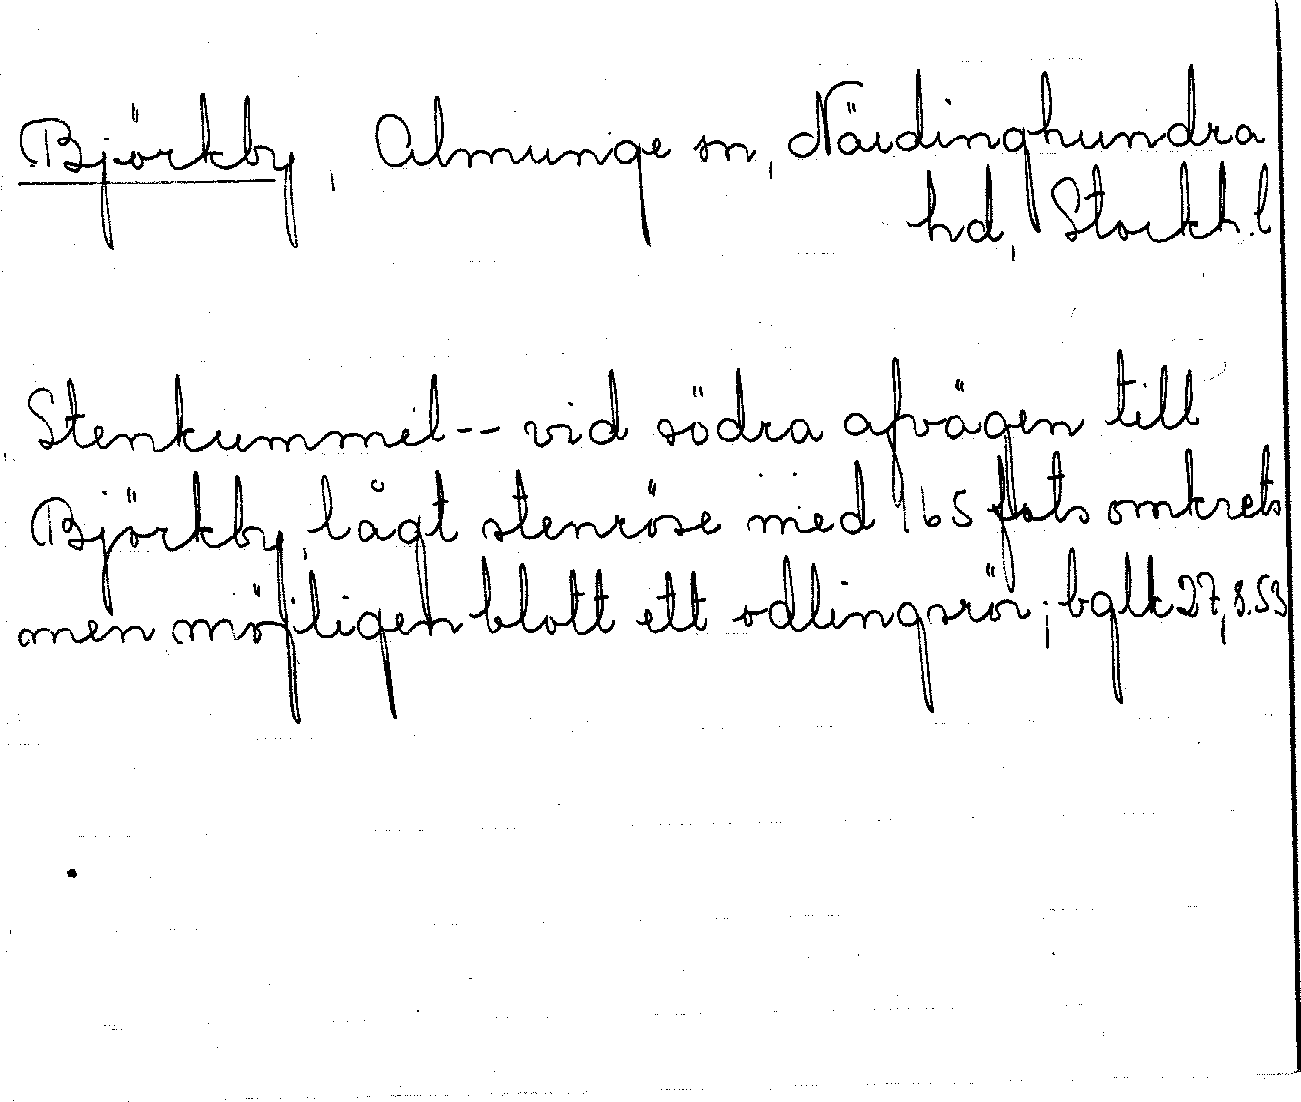 Björkby, Almunge sn, Närdinghundra
hd, Stockh.l
Stenkummel-- vid södra afvägen till
Björkby, lågt stenröse med 165 fots omkrets
men möjligen blott ett odlingsrör; bglk 27, s.53